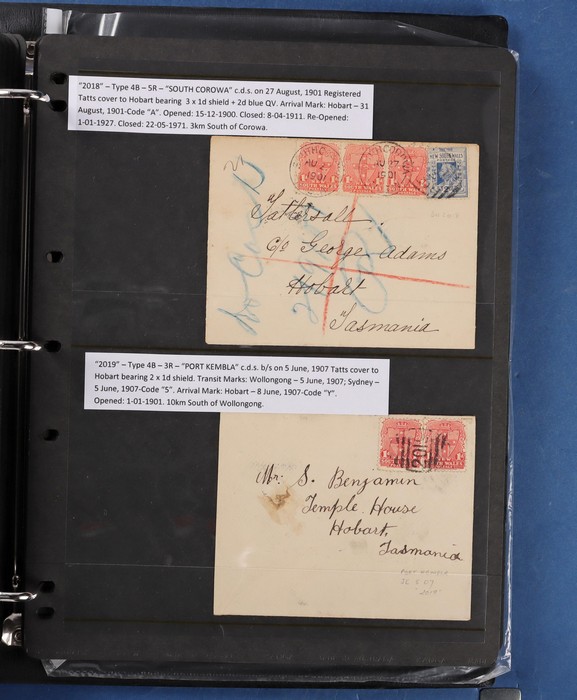 "2018" – Type 4B – 5R – "SOUTH COROWA" c.d.s. on 27 August, 1901 Registered
Tatts cover to Hobart bearing 3 x 1d shield + 2d blue QV. Arrival Mark: Hobart – 31
August, 1901-Code "A". Opened: 15-12-1900. Closed: 8-04-1911. Re-Opened:
1-01-1927. Closed: 22-05-1971. 3km South of Corowa.
1901
1901
NEW SOUTH WALES
Tattersall.
C/o George Adams
Hobart
Tasmania
"2019" – Type 4B – 3R – "PORT KEMBLA" c.d.s. b/s on 5 June, 1907 Tatts cover to
Hobart bearing 2 x 1d shield. Transit Marks: Wollongong – 5 June, 1907; Sydney –
5 June, 1907-Code "5". Arrival Mark: Hobart – 8 June, 1907-Code "Y".
Opened: 1-01-1901. 10km South of Wollongong.
Mr. S. Benjamin
Temple House
Hobart,
Tasmania
PORT KEMBLA
2019